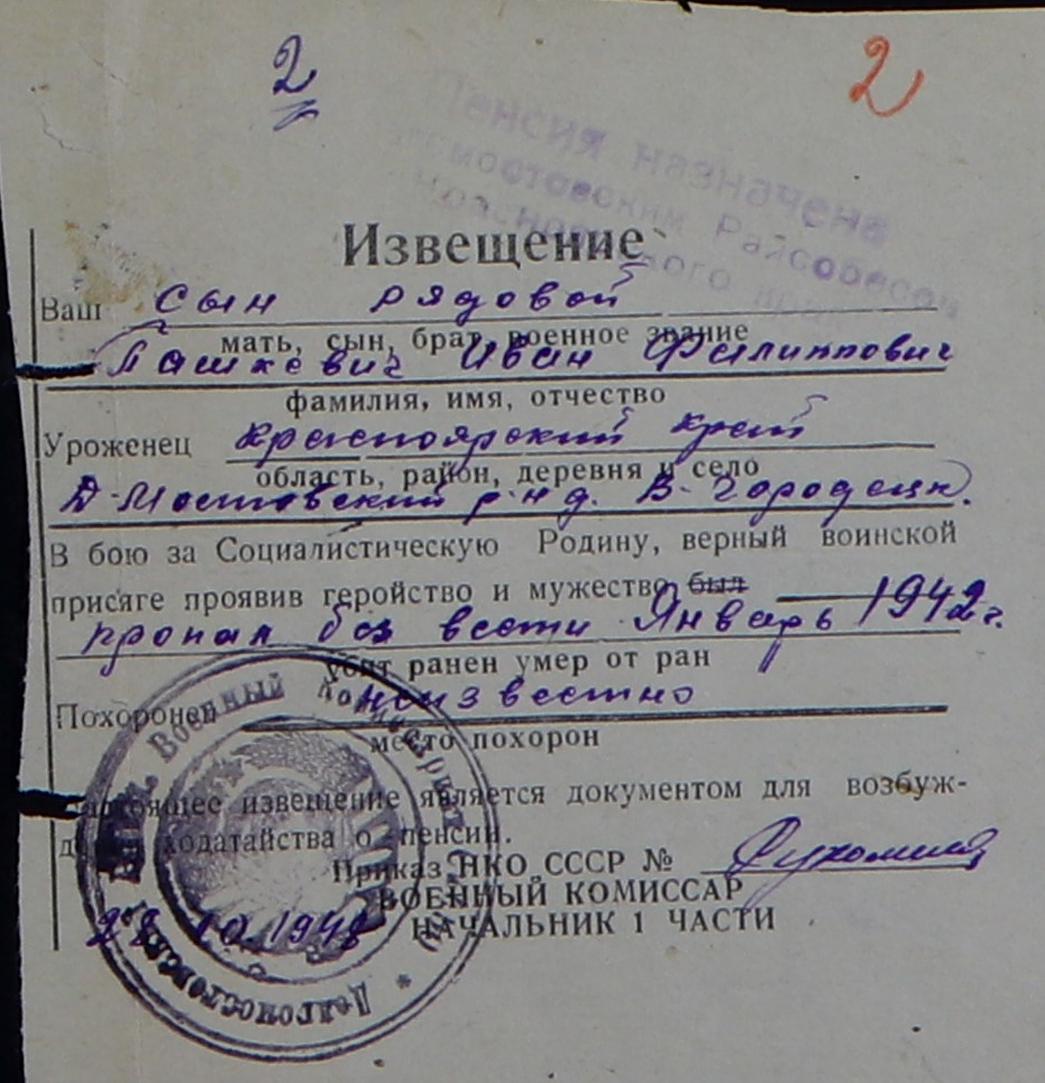 2 2
Пенсия назначена
мостовским Райсобесом
Красноярского края
Извещение
Ваш сын рядовой
мать, сын, брат, военное звание
Ташкевич Иван Филиппович
фамилия, имя, отчество
Уроженец Красноярский край
область, район, деревня и село
Д-Мостовский р-н д. В-Городецк.
В бою за Социалистическую Родину, верный воинской
присяге проявив геройство и мужество был
пропал без вести Январь 1942 г.
убит ранен умер от ран
неизвестно
Похоронен
место похорон
Настоящее извещение является документом для возбуж-
дения ходатайства о пенсии.
Приказ НКО СССР №
ВОЕННЫЙ КОМИССАР
10.1948 НАЧАЛЬНИК 1 ЧАСТИ
Военный Комиссариат
Долгомостовский